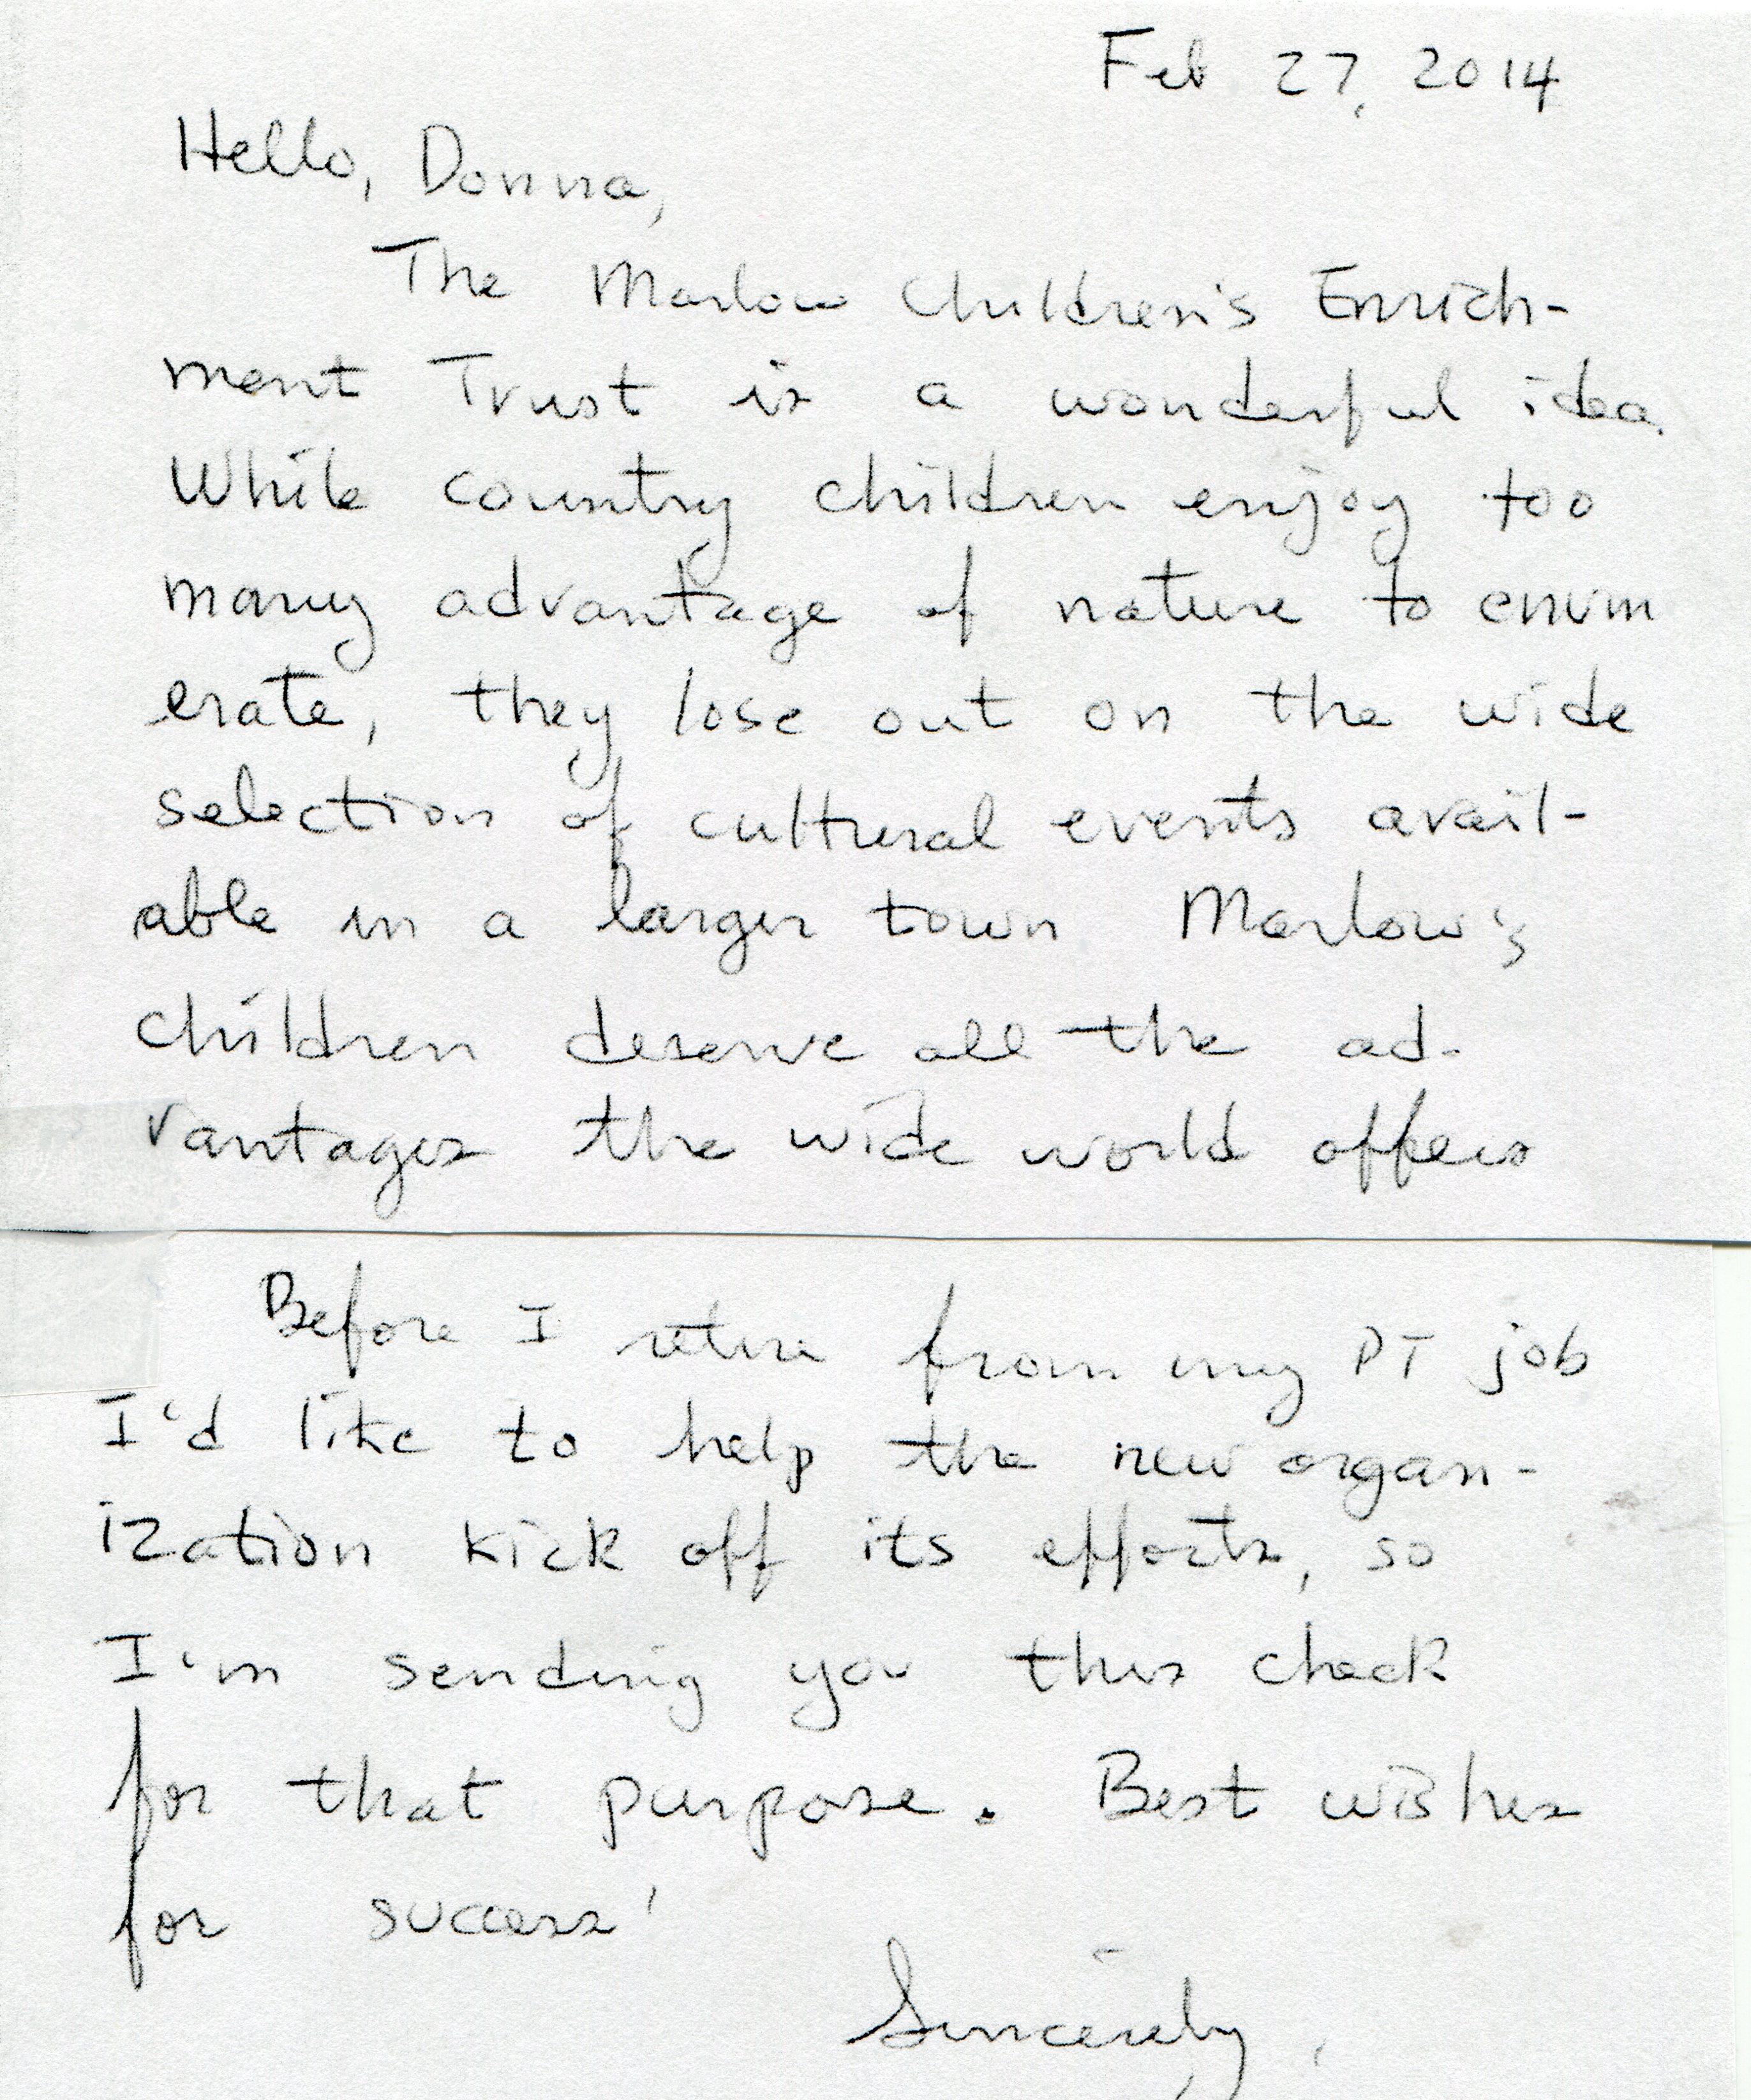 Feb 27, 2014
Hello, Donna,
The Marlow Children's Enrich-
ment Trust is a wonderful idea.
While country children enjoy too
many advantage of nature to enum
erate, they lose out on the wide
selection of cultural events avail-
able in a larger town Marlow's
children deserve all the ad-
vantages the wide world offers
Before I retire from my PT job
I'd like to help the new organ-
ization kick off its efforts, so
I'm sending you this check
for that purpose. Best wishes
for success!
Sincerely,